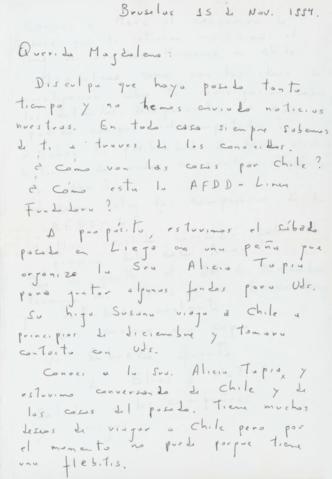 Bruselas 15 de Nov. 1994.
Querida Magdalena:
Disculpa que haya pasado tanto
tiempo y no hemos enviado noticias
nuestras. En todo caso siempre sabemos
de ti a traves de los conocidos.
¿ Cómo van las cosas por Chile?
¿ Cómo esta la AFDD - Linea
Fundadora?
A propósito, estuvimos el sábado
pasado en Lieja en una peña que
organizo la Sra Alicia Tapia
para juntar algunos fondos para Uds.
Su hija Susana viaja a Chile a
principios de diciembre y tomara
contacto con Uds.
Conoci a la Sra. Alicia Tapia, y
estuvimo conversando de Chile y de
las cosas del pasado. Tiene muchos
deseos de viajar a Chile pero por
el momento no puede porque tiene
una flebitis.